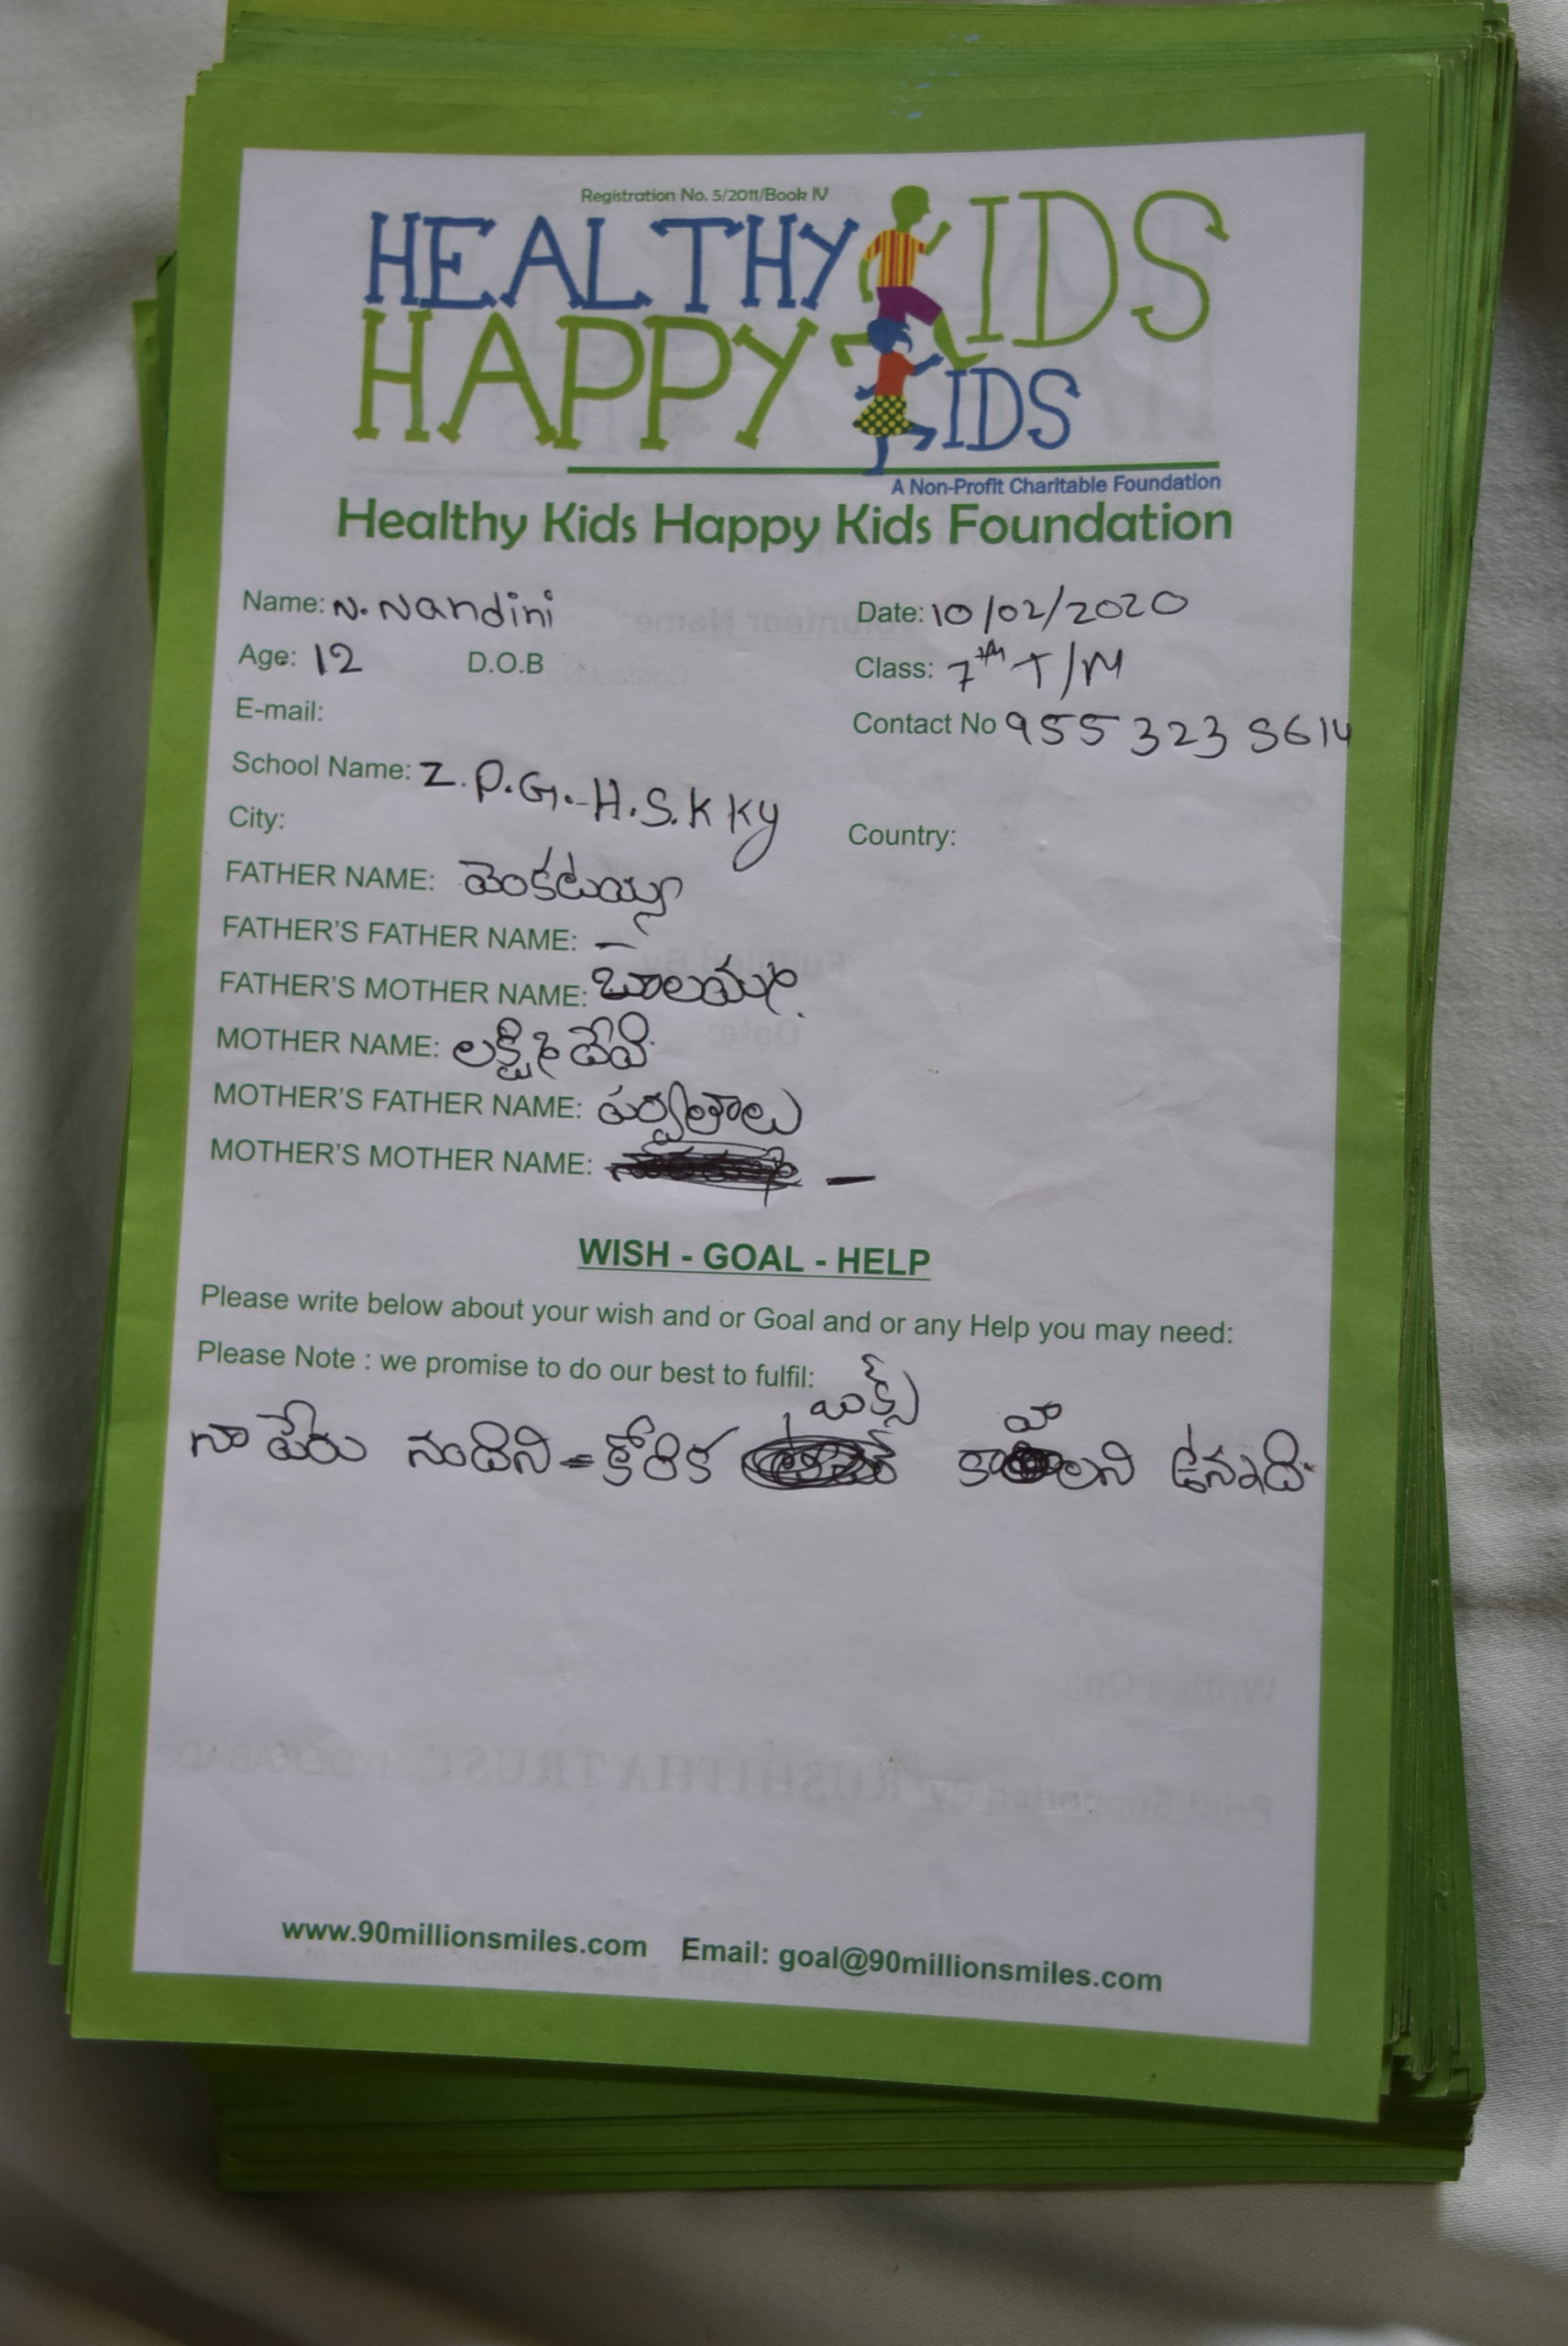 Registration No. 5/2011/Book IV
HEALTHY KIDS
HAPPY KIDS
A Non-Profit Charitable Foundation
Healthy Kids Happy Kids Foundation
Name: N. Nandini Date: 10/02/2020
Age: 12 D.O.B Class: 7th T/M
E-mail: Contact No 955 323 5614
School Name: Z.P.G.-H.S.K KY
City: Country:
FATHER NAME: వెంకటయ్య
FATHER'S FATHER NAME: —
FATHER'S MOTHER NAME: బాలమ్మ.
MOTHER NAME: లక్ష్మి దేవి.
MOTHER'S FATHER NAME: పర్వతాలు
MOTHER'S MOTHER NAME: —
WISH - GOAL - HELP
Please write below about your wish and or Goal and or any Help you may need:
Please Note : we promise to do our best to fulfil:
నా పేరు నందిని = కోరిక బుక్స్ కావాలని ఉన్నది.
www.90millionsmiles.com Email: goal@90millionsmiles.com